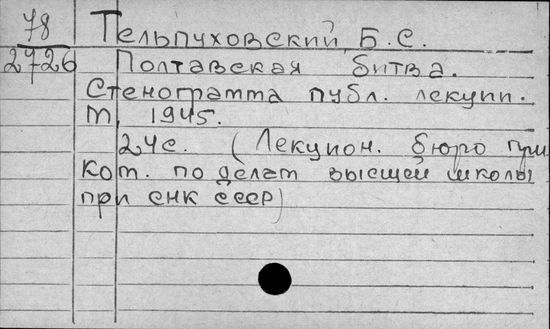 78
2726
Тельпуховский, Б. С.
Полтавская битва.
Стенограмма публ. лекции.
М, 1945.
24с. (Лекцион. бюро при
Ком. по делам высшей школы
при СНК СССР)